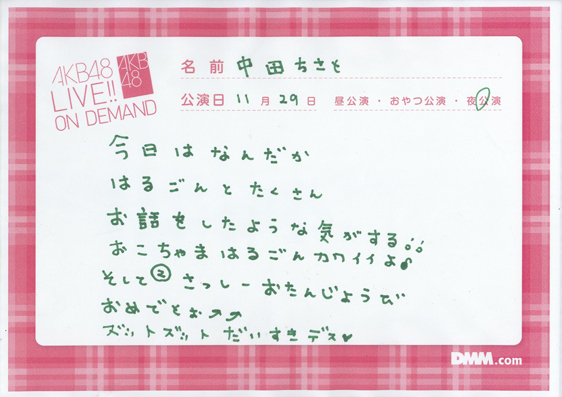 AKB48
LIVE!!
ON DEMAND
AKB
48
名前 中田ちさと
公演日 11月29日 昼公演・おやつ公演・夜公演
今日はなんだか
はるごんとたくさん
お話をしたような気がする。。
おこちゃまはるごんカワイイよ♪
そして②さっしーおたんじょうび
おめでとぉ↗↗
ズットズットだいすきデス♥
DMM.com